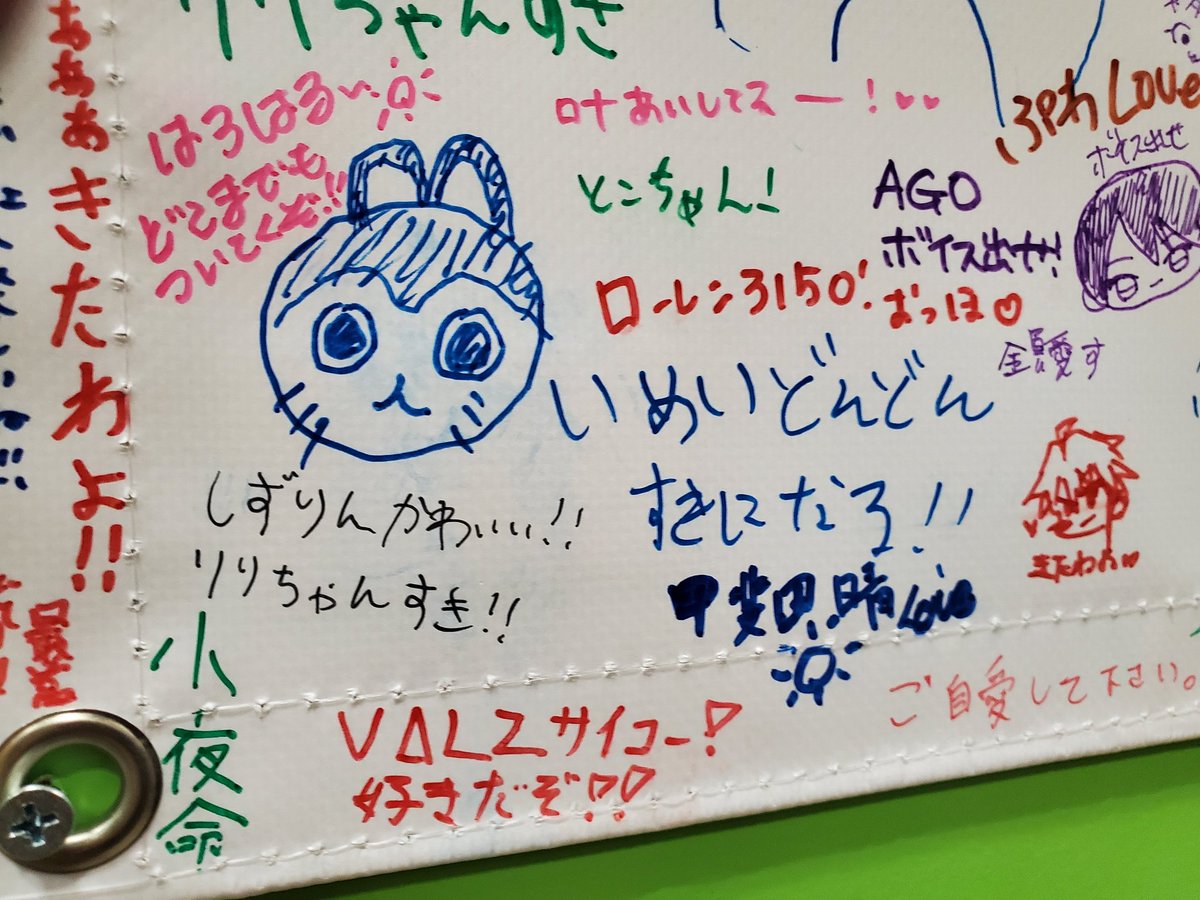 りりちゃんすき
はろはるぃ
どこまでも
ついてくぞ!!
叶あいしてるー!♡♡
ぷわLove
とこちゃん!
AGO
ボイス出せ!!
ボイス出せ
ローレン3150!
おっほ♡
全員愛す
いめいどんどん
すきになろ!!
しずりんかわいい!!
りりちゃんすき!!
きたわん♡
甲斐田晴Love
小夜命
VΔLZサイコー!
好きだぞ!!
ご自愛して下さい。
ああぁきたわよ!!